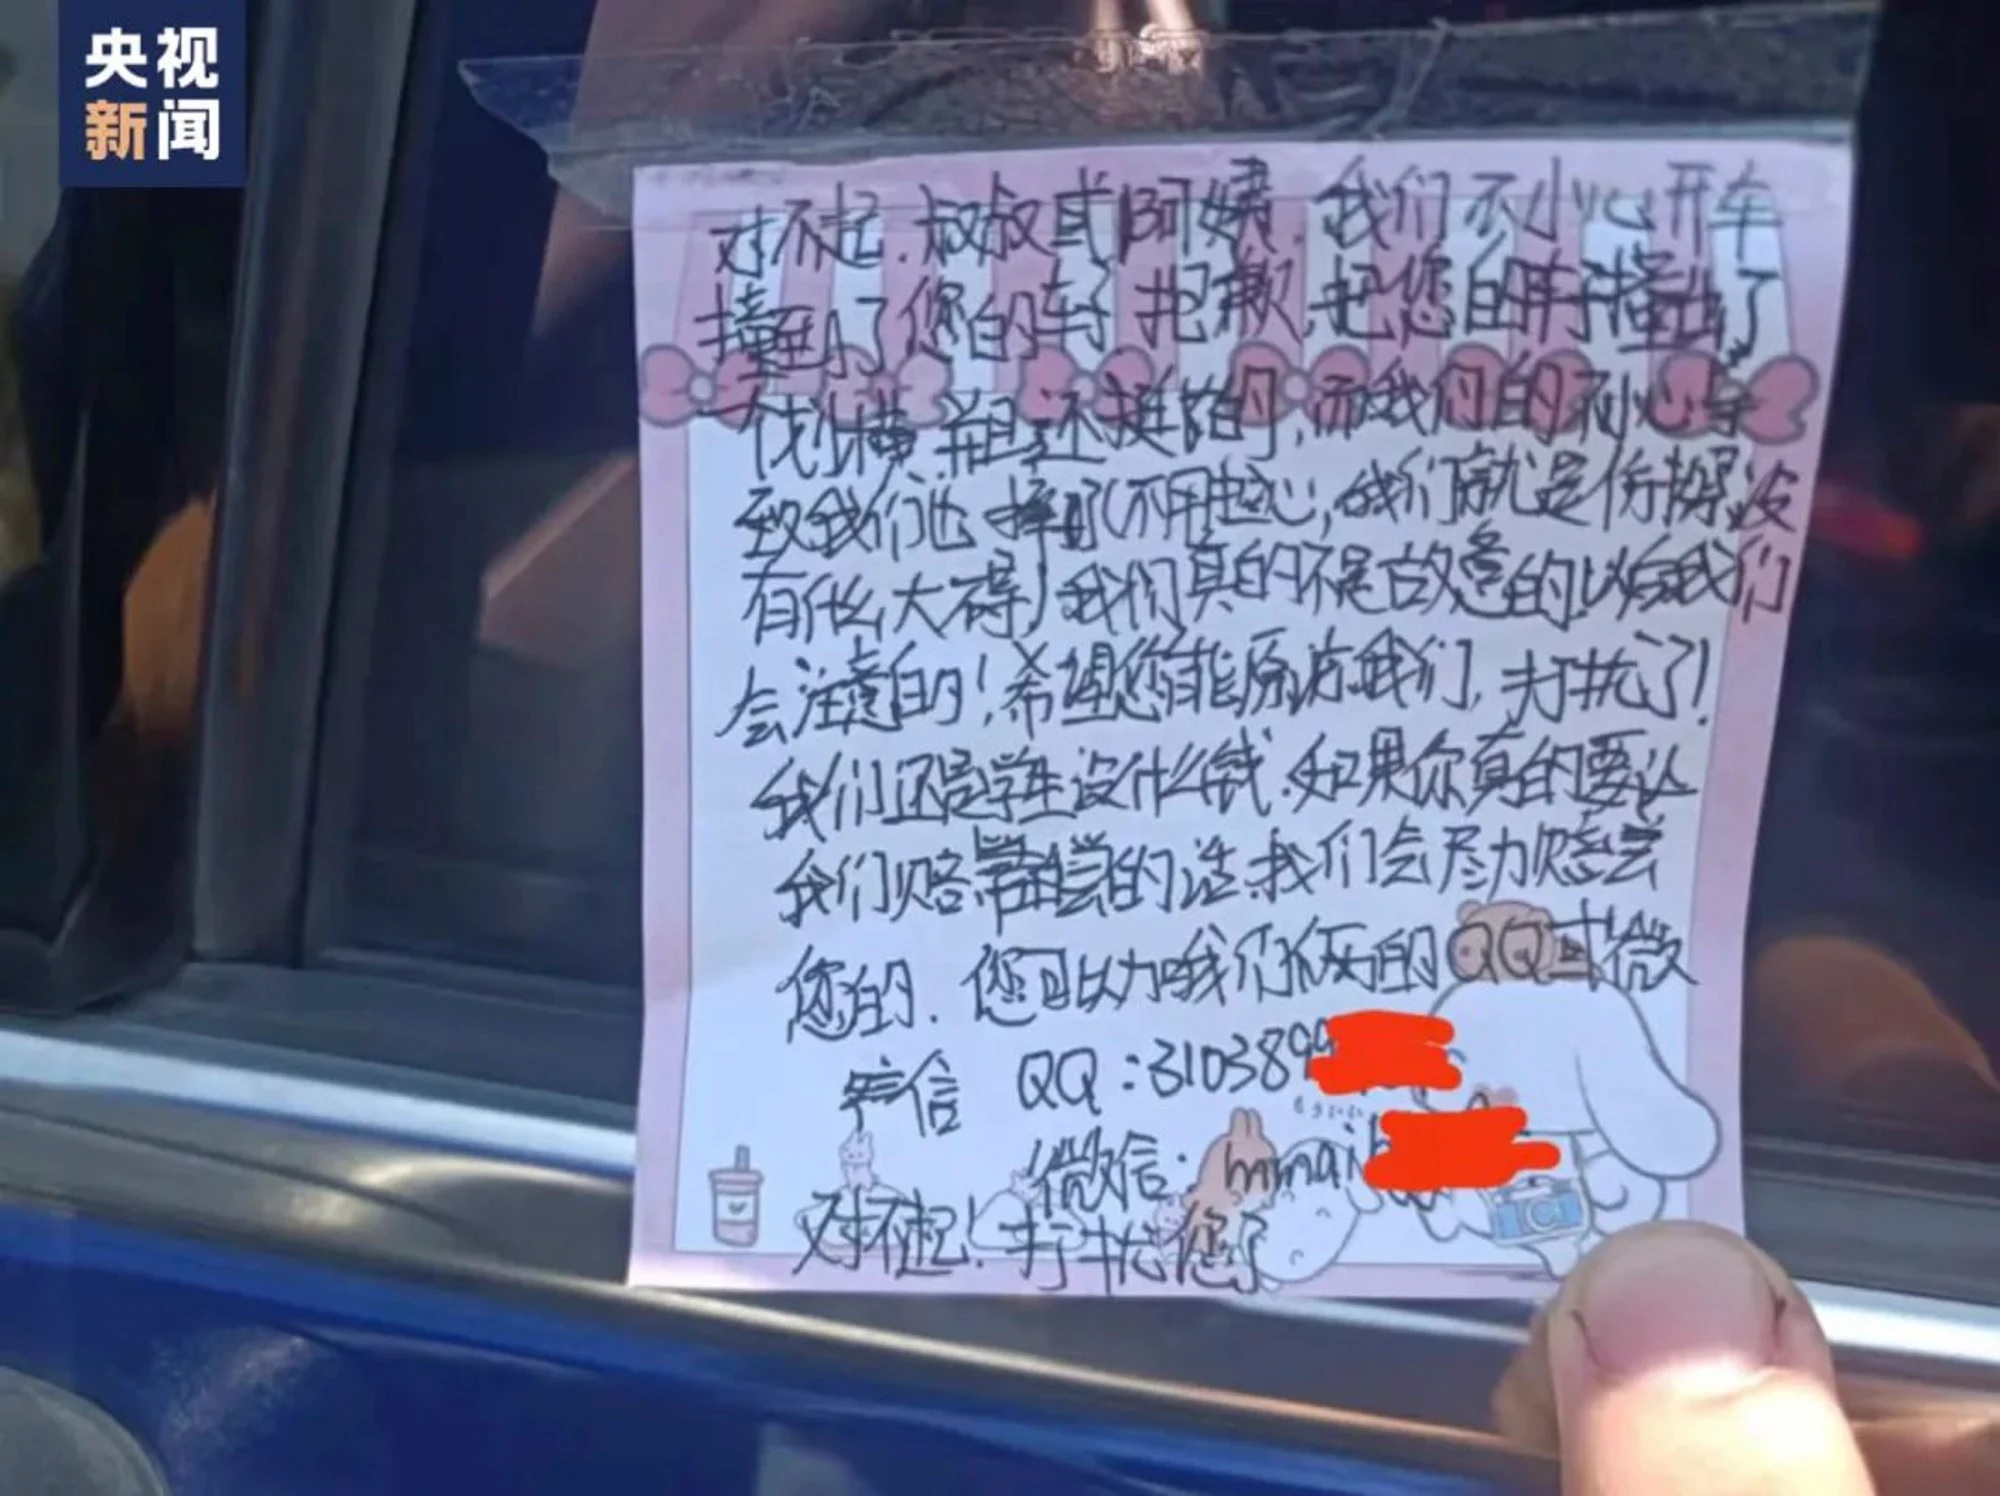 央视
新闻
对不起.叔叔或阿姨.我们不小心开车
撞到了您的车了抱歉,把您的车子撞出了
个划横,并且还挺陷的,而我们的不小心导
致我们也摔了(不用担心,我们就是俩擦没
有什么大碍)我们真的不是故意的以后我们
会注意的!希望您能原谅我们,打扰了!
我们还是学生没什么钱.如果你真的要让
我们赔偿的话.我们会尽力赔尝
您的.您可以加我们俩的QQ或微
信 QQ:3103899
微信:mmai
对不起!打扰您了